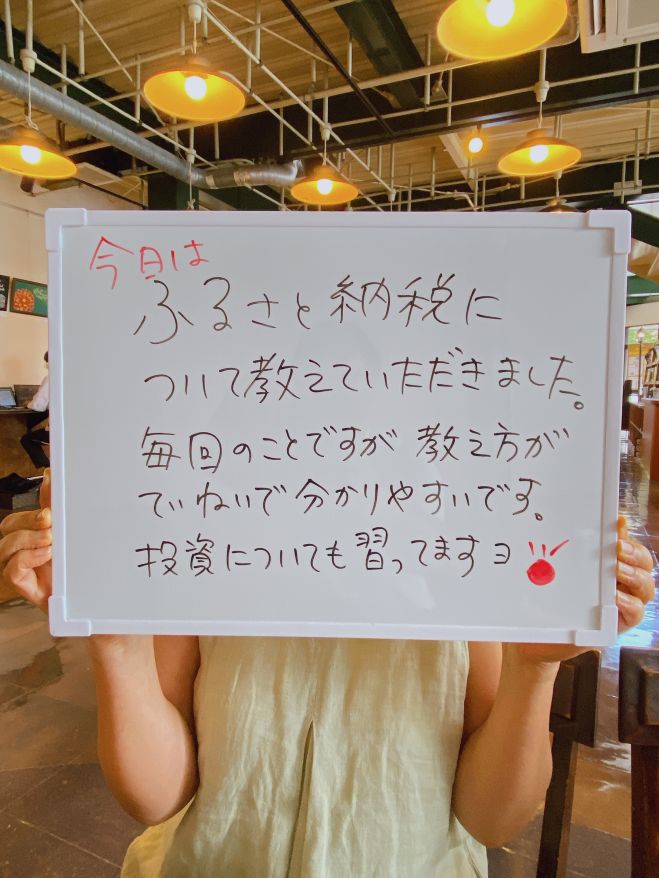 今日は
ふるさと納税に
ついて教えていただきました。
毎回のことですが 教え方が
ていねいで分かりやすいです。
投資についても習ってますヨ